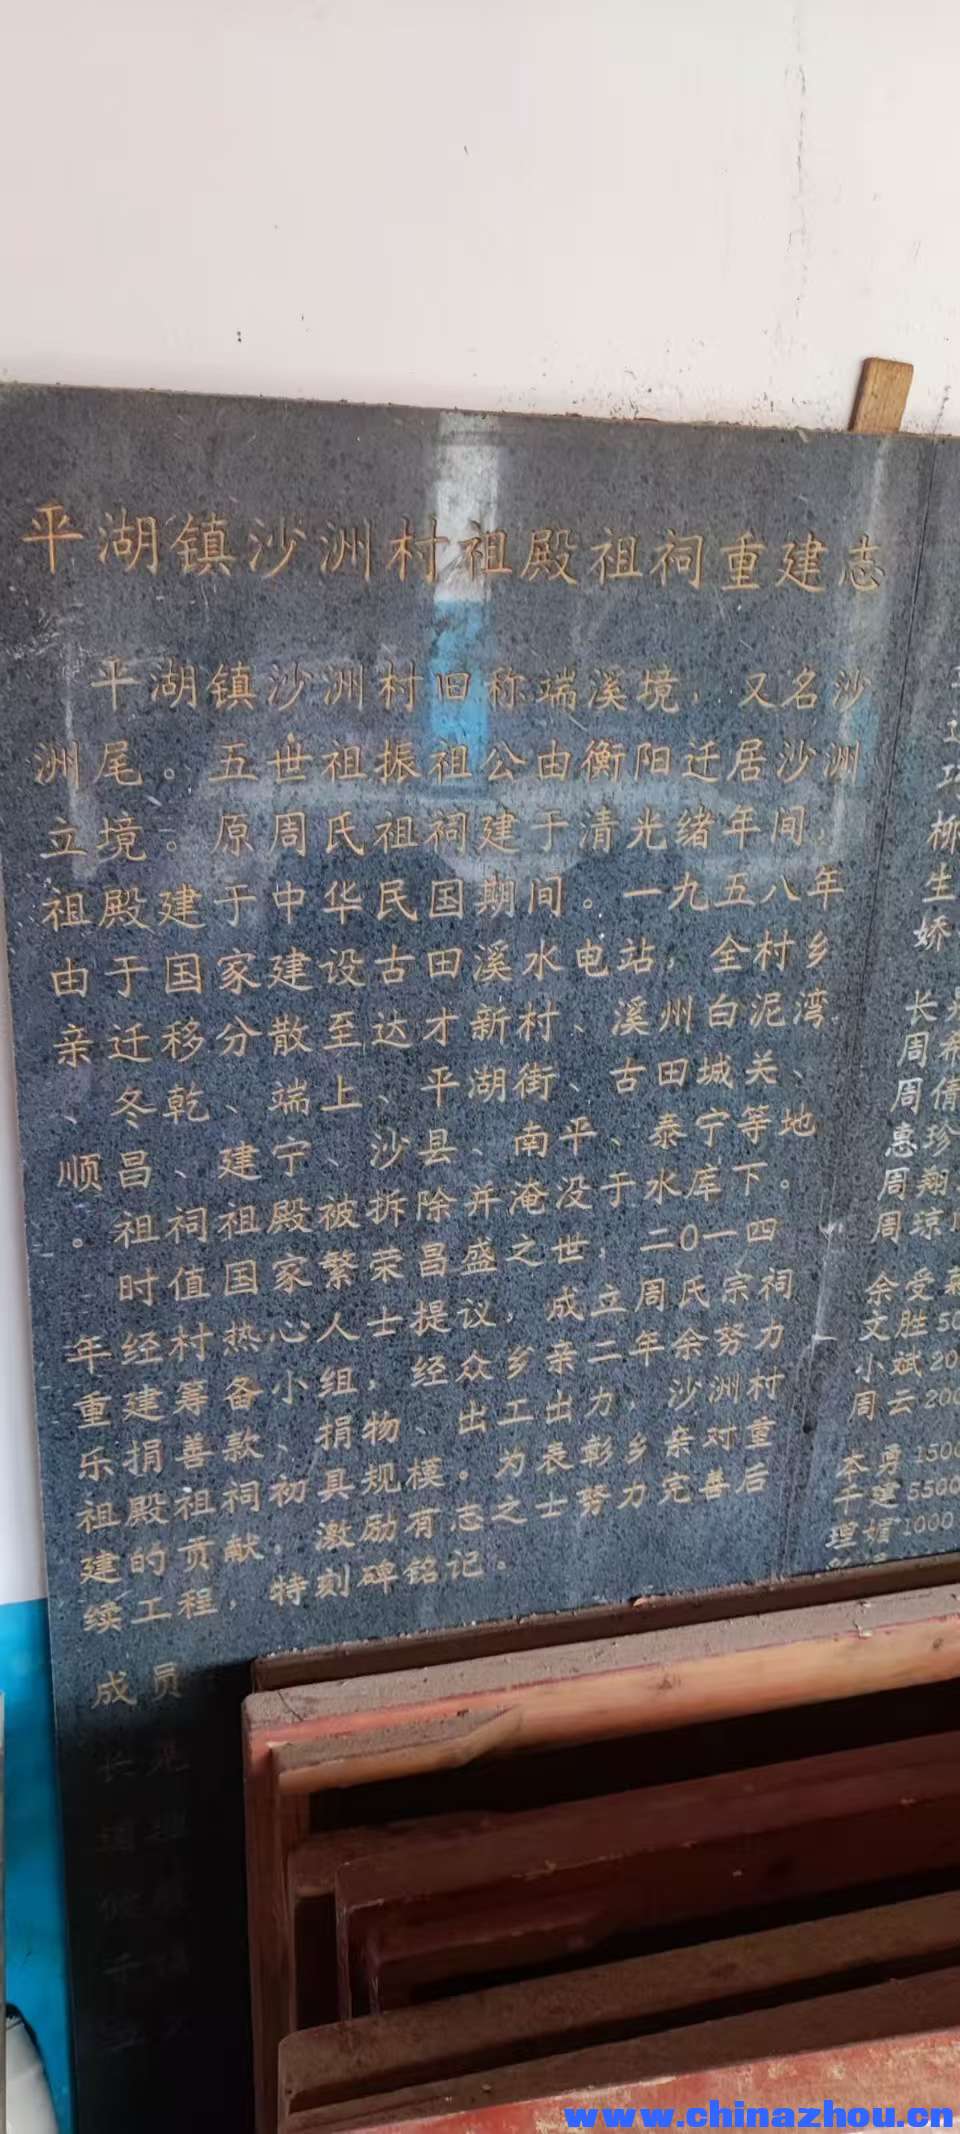 平湖镇沙洲村祖殿祖祠重建志
平湖镇沙洲村旧称端溪境，又名沙
洲尾。五世祖振祖公由衡阳迁居沙洲
立境。原周氏祖祠建于清光绪年间，
祖殿建于中华民国期间。一九五八年
由于国家建设古田溪水电站，全村乡
亲迁移分散至达才新村、溪州白泥湾
、冬乾、端上、平湖街、古田城关、
顺昌、建宁、沙县、南平、泰宁等地
。祖祠祖殿被拆除并淹没于水库下。
时值国家繁荣昌盛之世，二0一四
年经村热心人士提议，成立周氏宗祠
重建筹备小组，经众乡亲二年余努力
乐捐善款、捐物、出工出力，沙洲村
祖殿祖祠初具规模。为表彰乡亲对重
建的贡献，激励有志之士努力完善后
续工程，特刻碑铭记。
成员
柳
生
娇
长
周希
周倩
惠珍
周翔
周琼
余受
文胜50
小斌20
周云200
本勇1500
千建5500
理媚1000
www.chinazhou.cn